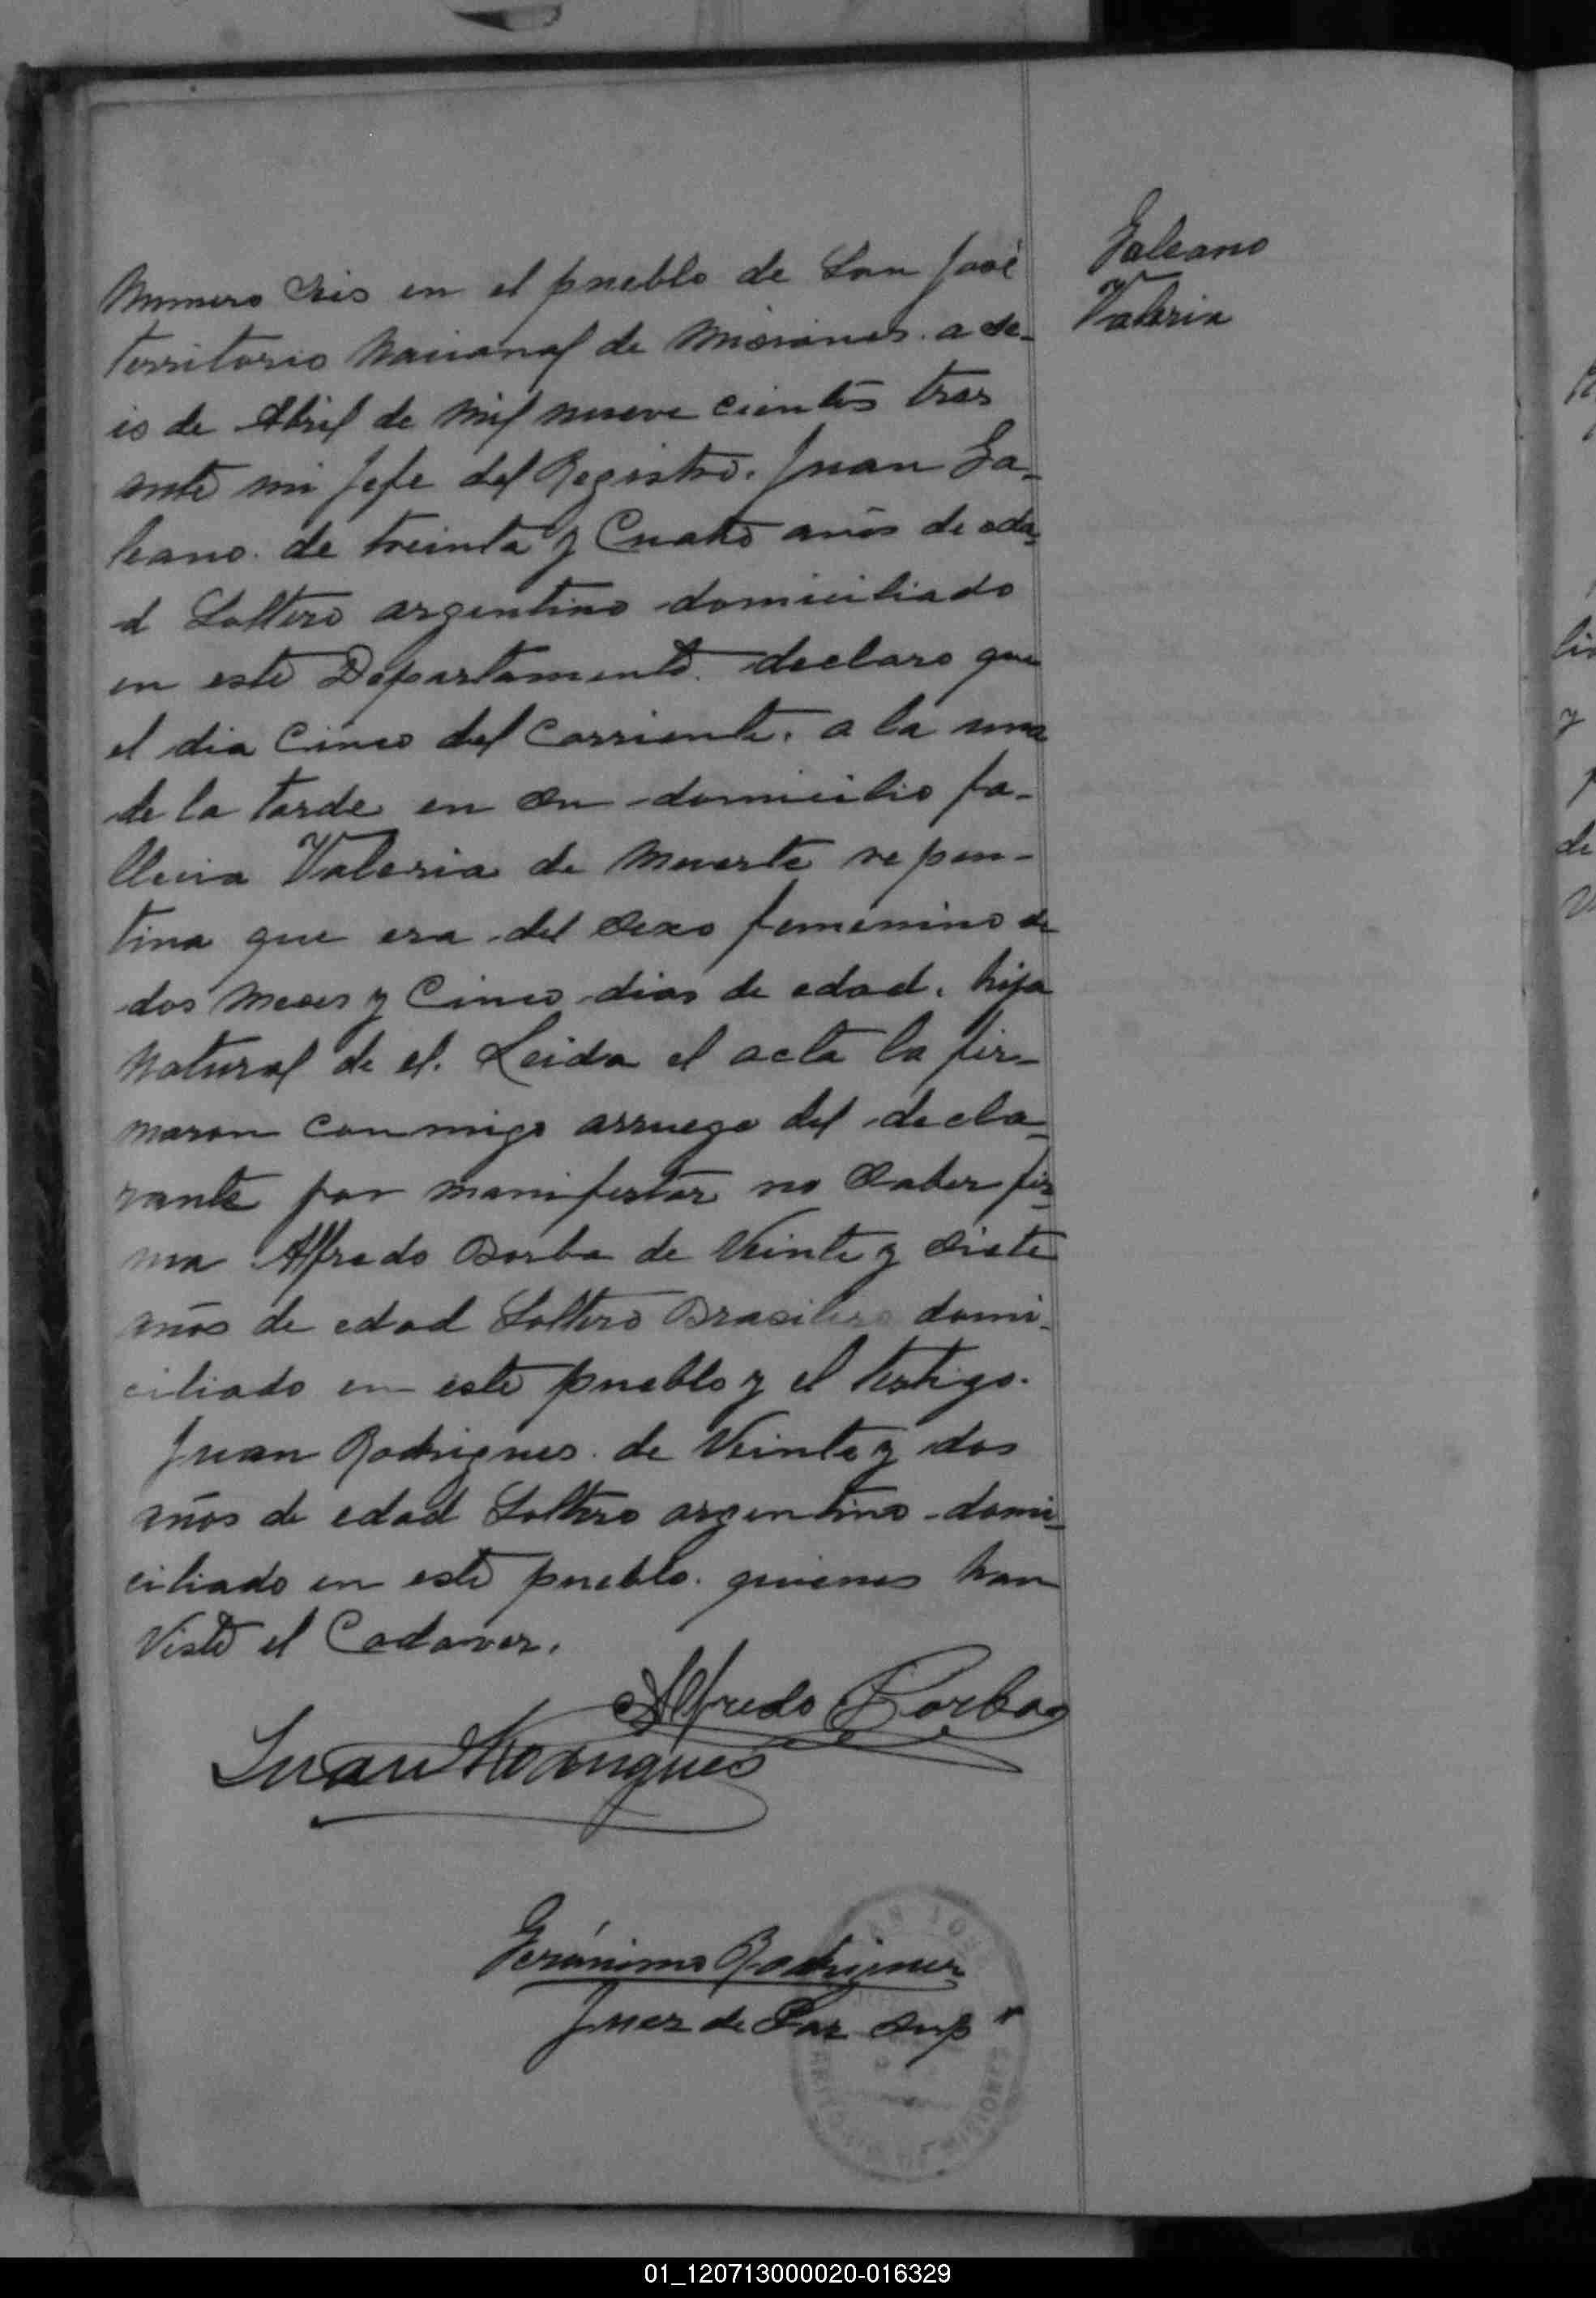 Numero Seis en el pueblo de San José
territorio Nacional de Misiones. a se-
is de Abril de mil nueve cientos tres
ante mi Jefe del Registro. Juan Ga-
leano. de treinta y Cuatro años de eda-
d Soltero argentino domiciliado
en este Departamento. declaro que
el dia Cinco del Corriente. a la una
de la tarde en su domicilio fa-
llecia Valeria de muerte repen-
tina que era del sexo femenino de
dos meses y Cinco dias de edad. hija
Natural de el. Leida el acta la fir-
maron conmigo arruego del decla-
rante por manifestar no saber fir-
ma Alfredo Borba de Veinte y siete
años de edad Soltero Brasilero domi-
ciliado en este pueblo y el testigo.
Juan Rodrigues. de Veinte y dos
años de edad Soltero argentino domi-
ciliado en este pueblo. quienes han
Visto el Cadaver.
Alfredo Borba
Juan Rodrigues
Gerónimo Rodriguez
Juez de Paz Sup
Galeano
Valeria
01_120713000020-016329